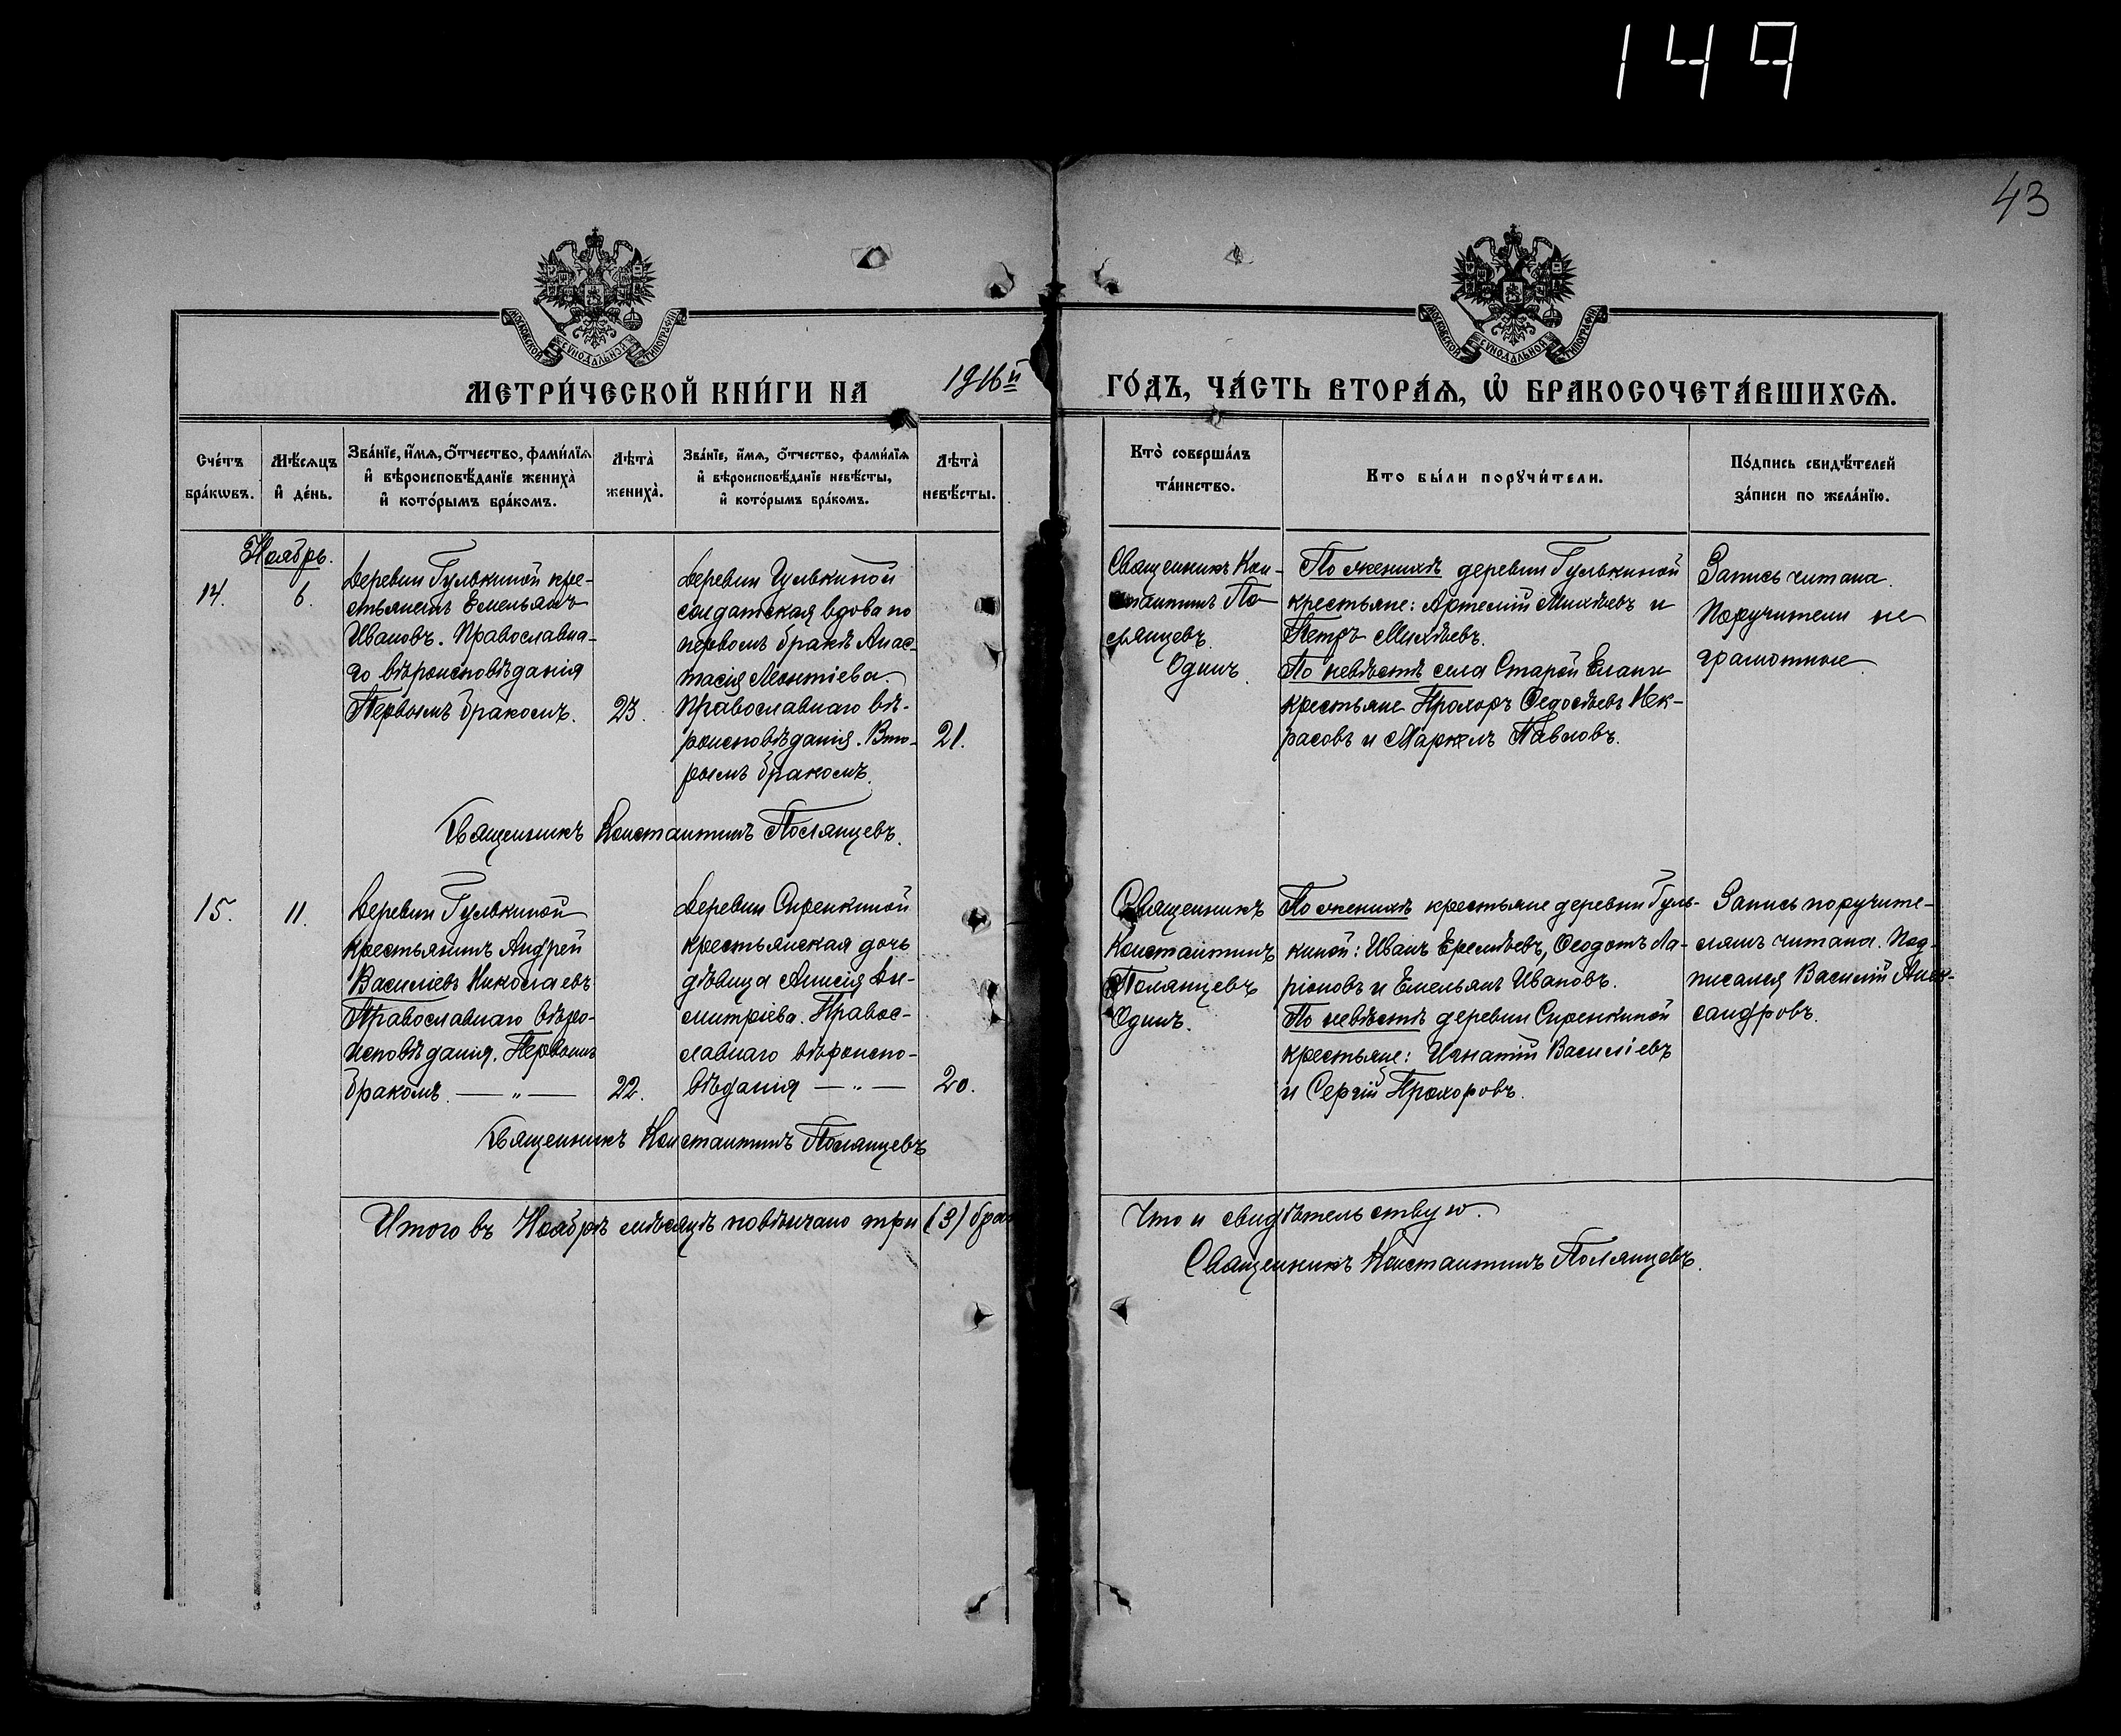 149
43
МОСКОВСКОЙ СѴНОДАЛЬНОЙ ТИПОГРАФІИ
МОСКОВСКОЙ СѴНОДАЛЬНОЙ ТИПОГРАФІИ
МЕТРИ́ЧЕСКОЙ КНИ́ГИ НА 1916й ГО́ДЪ, ЧА́СТЬ ВТОРА́Ѧ, Ѡ҆ БРАКОСОЧЕТА́ВШИХСѦ.
Сче́тъ
бра́кѡвъ.
Мѣ́сяцъ
и҆ де́нь.
Зва́нїе, и҆́мѧ, ѻ҆́тчество, фами́лїѧ
и҆ вѣроисповѣ́данїе жениха̀
и҆ кото́рымъ бра́комъ.
Лѣта̀
жениха̀.
Зва́нїе, и҆́мѧ, ѻ҆́тчество, фами́лїѧ
и҆ вѣроисповѣ́данїе невѣ́сты,
и҆ кото́рымъ бра́комъ.
Лѣта̀
невѣ́сты.
Кто̀ соверша́лъ
та́инство.
Кто бы́ли порꙋчи́тели.
По́дпись свидѣ́телей
за́писи по жела́нїю.
Ноябрь.
14.
6.
Деревни Гулькиной кре-
стьянинъ Емельянъ
Ивановъ. Православна-
го вѣроисповѣданія
Первымъ бракомъ.
23.
Деревни Гулькиной
солдатская вдова по
первомъ бракѣ Анас-
тасія Леонтіева.
Православнаго вѣ-
роисповѣданія. Вто-
рымъ бракомъ.
21.
Священникъ Кон-
стантинъ По-
лянцевъ.
Одинъ.
По женихѣ деревни Гулькиной
крестьяне: Артемій Михѣевъ и
Петръ Михѣевъ.
По невѣстѣ села Старой Елани
крестьяне Прохоръ Ѳедосѣевъ Нек-
расовъ и Маркелъ Павловъ.
Запись читана.
Поручители не
грамотные
Священникъ Константинъ Полянцевъ.
15.
11.
Деревни Гулькиной
крестьянинъ Андрей
Василіевъ Николаевъ
Православнаго вѣро-
исповѣданія. Первымъ
бракомъ. — „ —
22.
Деревни Сиренкиной
крестьянская дочь
дѣвица Анисія Ди-
митріева. Правос-
лавнаго вѣроиспо-
вѣданія — „ —
20.
Священникъ
Константинъ
Полянцевъ
Одинъ.
По женихѣ крестьяне деревни Гуль-
киной: Иванъ Еремѣевъ, Ѳеодотъ Ла-
ріоновъ и Емельянъ Ивановъ.
По невѣстѣ деревни Сиренкиной
крестьяне: Игнатій Василіевъ
и Сергій Прохоровъ.
Запись поручите-
лямъ читана. Под-
писался Василій Алек-
сандровъ.
Священникъ Константинъ Полянцевъ
Итого въ Ноябрѣ мѣсяцѣ повѣнчано три (3) бра
Что и свидѣтельствую.
Священникъ Константинъ Полянцевъ.